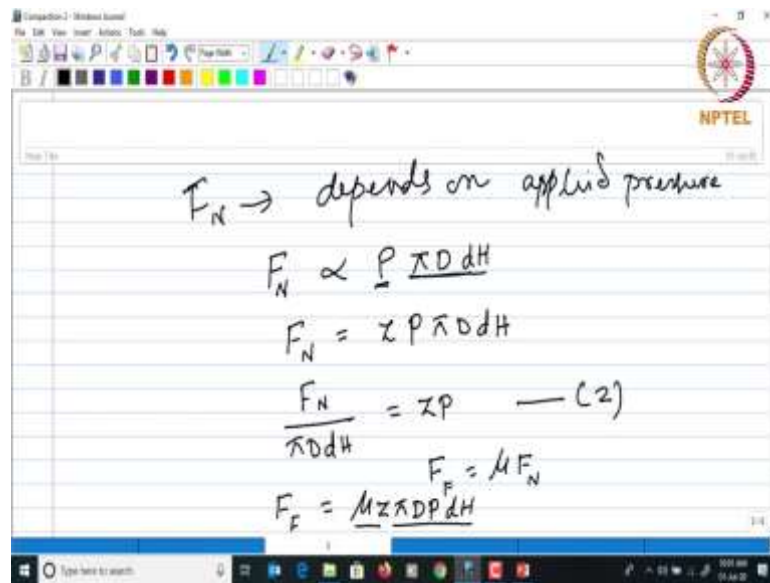 Compaction 2 - Windows Journal
File Edit View Insert Actions Tools Help
Page Width
B I
NPTEL
F_N → depends on applied pressure
F_N ∝ P πD dH
F_N = z P π D dH
F_N / πDdH = zP — (2)
F_F = μ F_N
F_F = μ z π D P dH
Type here to search